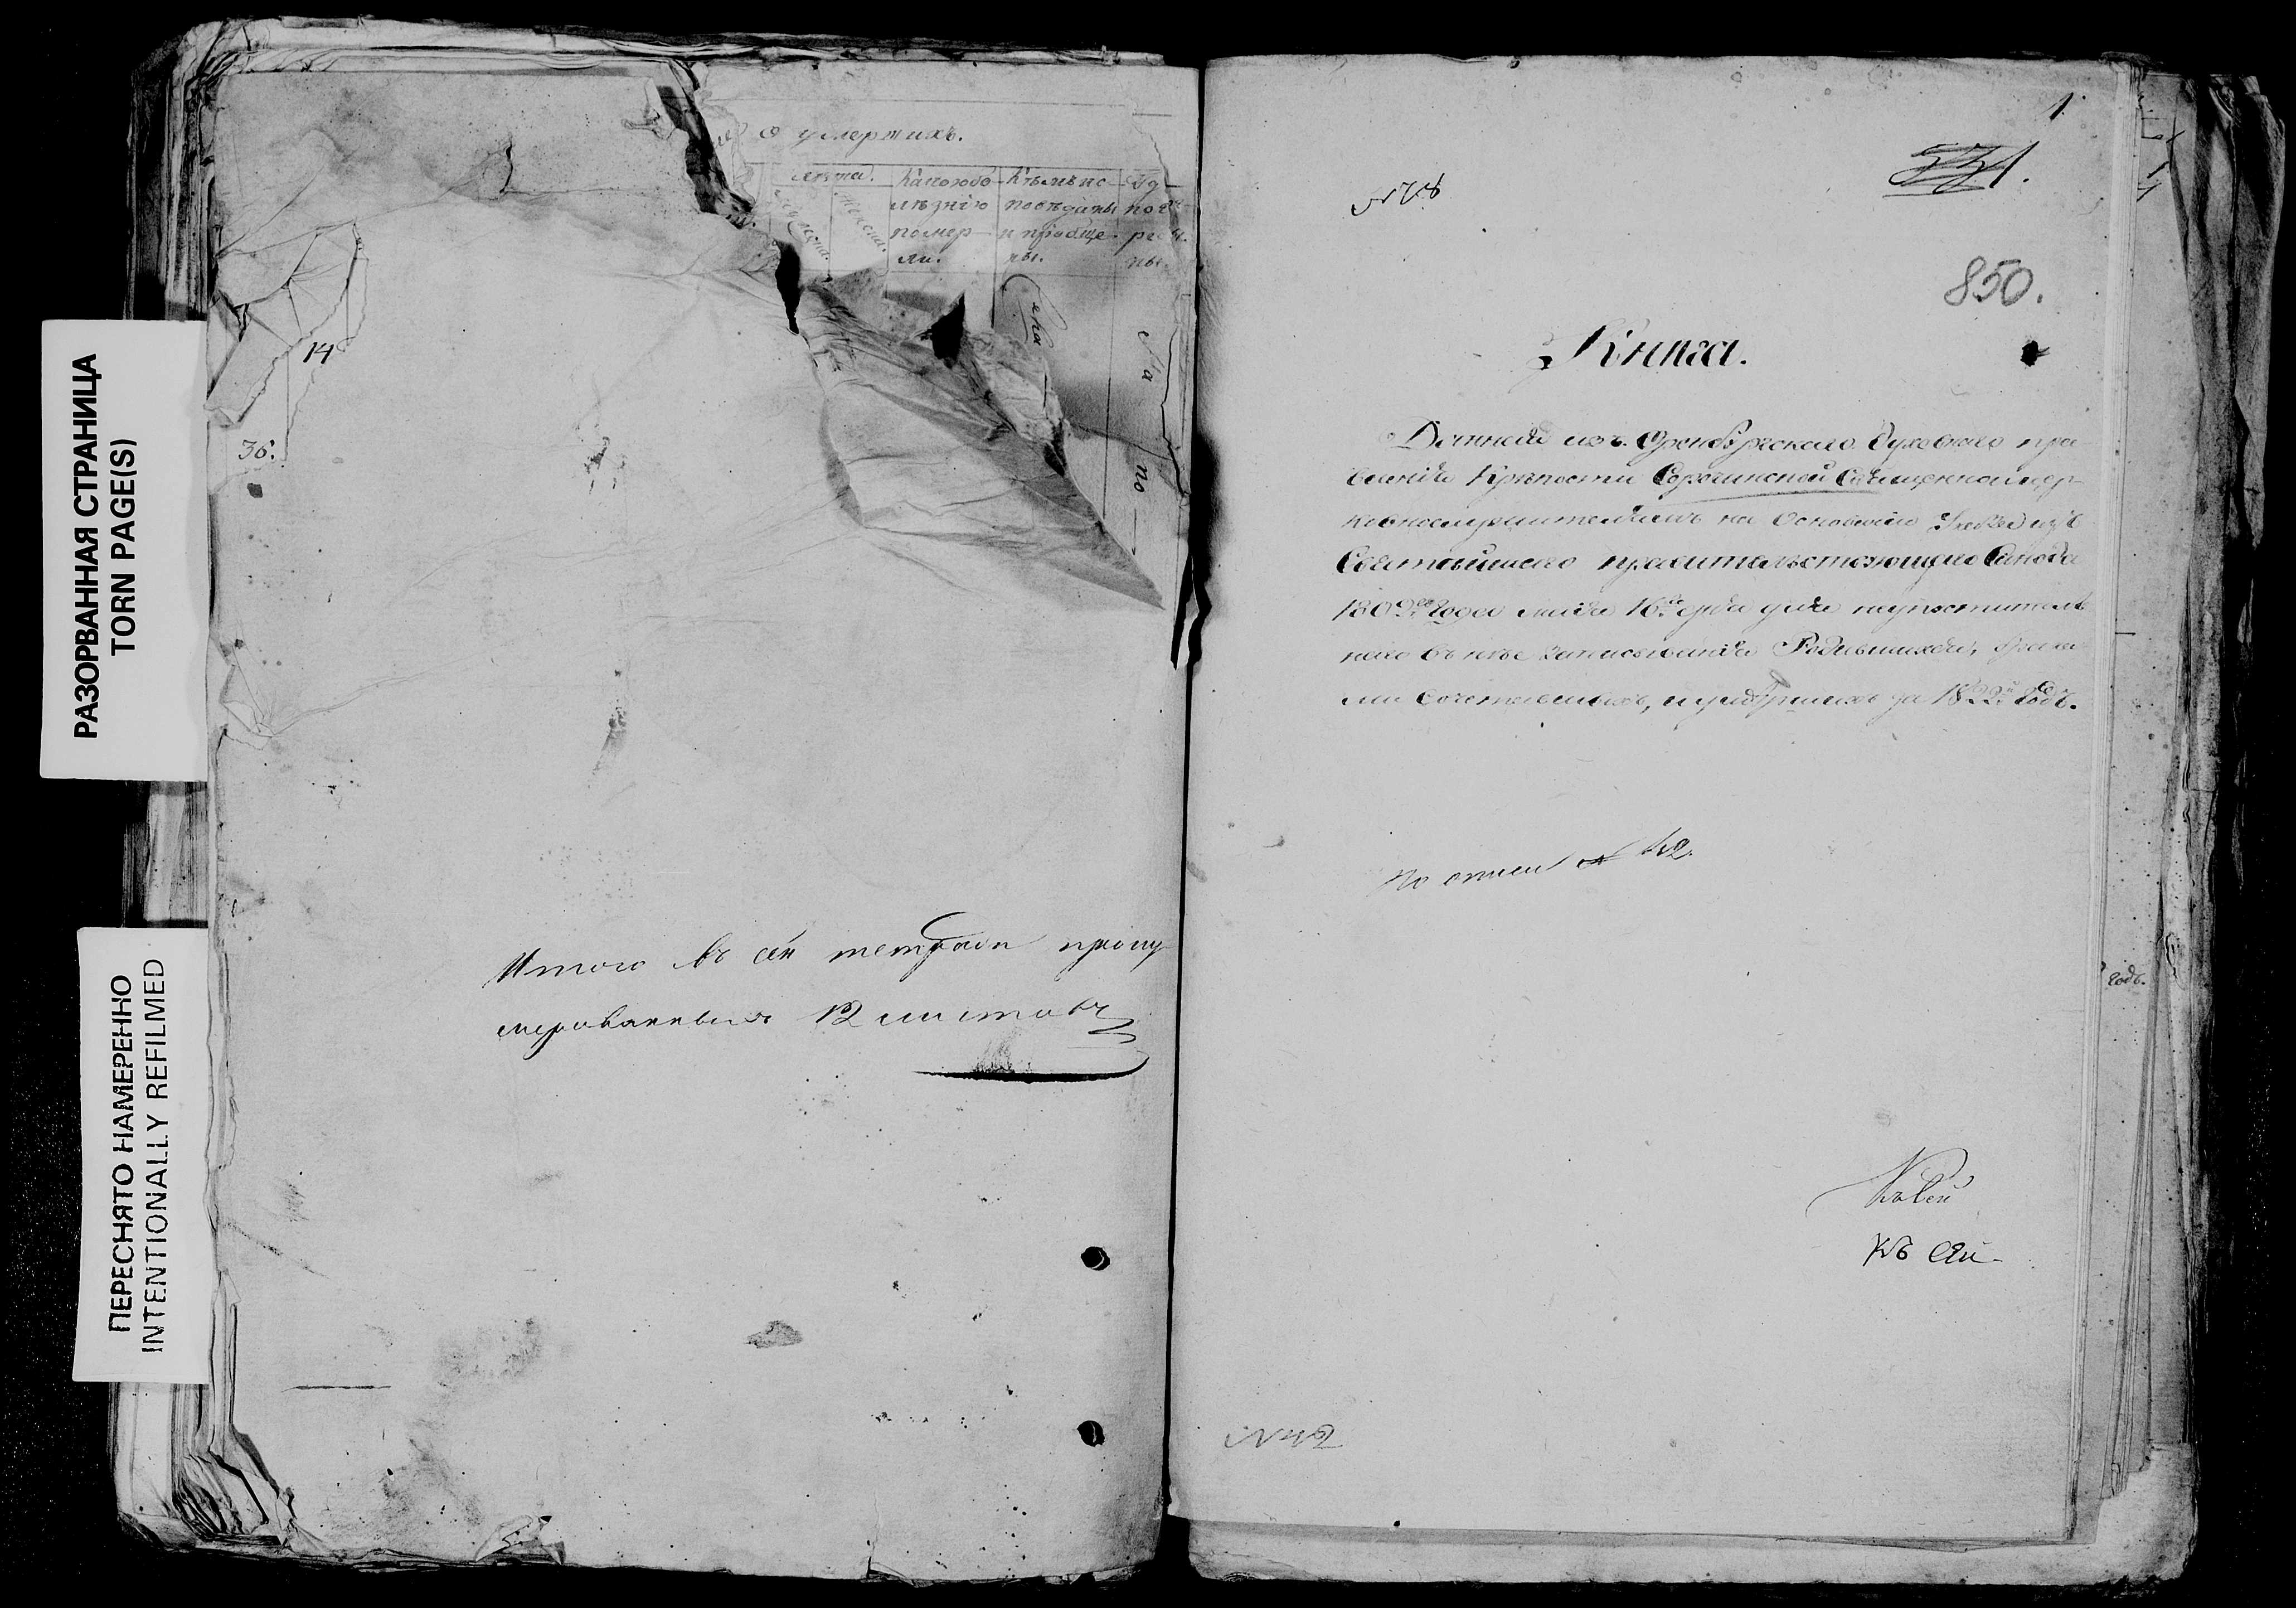 РАЗОРВАННАЯ СТРАНИЦА
TORN PAGE(S)
ПЕРЕСНЯТО НАМЕРЕННО
INTENTIONALLY REFILMED
о умершихъ.
лѣта.
Какою бо-
лѣзнію
помер-
ли.
Кѣмъ ис-
повѣданы
и пріобще-
ны.
14
36.
Итого въ сей тетради прону
мерованныхъ 12 листовъ
1.
331.
850.
Книга.
Данная изъ Оренбургскаго духовнаго пра
вленія Крѣпости Сорочинской Священноцер-
ковнослужителямъ на основаніи Указа изъ
Святѣйшаго правительствующаго Синода
1802го Года маія 16го дня
наго въ нѣе записыванія Родившихся, брако
мъ сочетавшихся, и умершихъ за 1822й Годъ.
По описи № 42.
Къ сей
Къ сей
годъ.